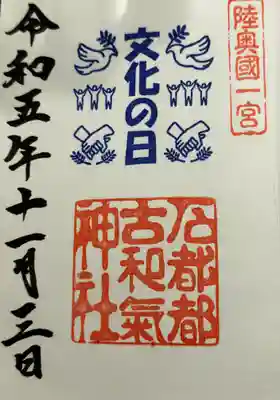 陸奥國一宮
文化の日
石都都古和氣神社
令和五年十一月三日